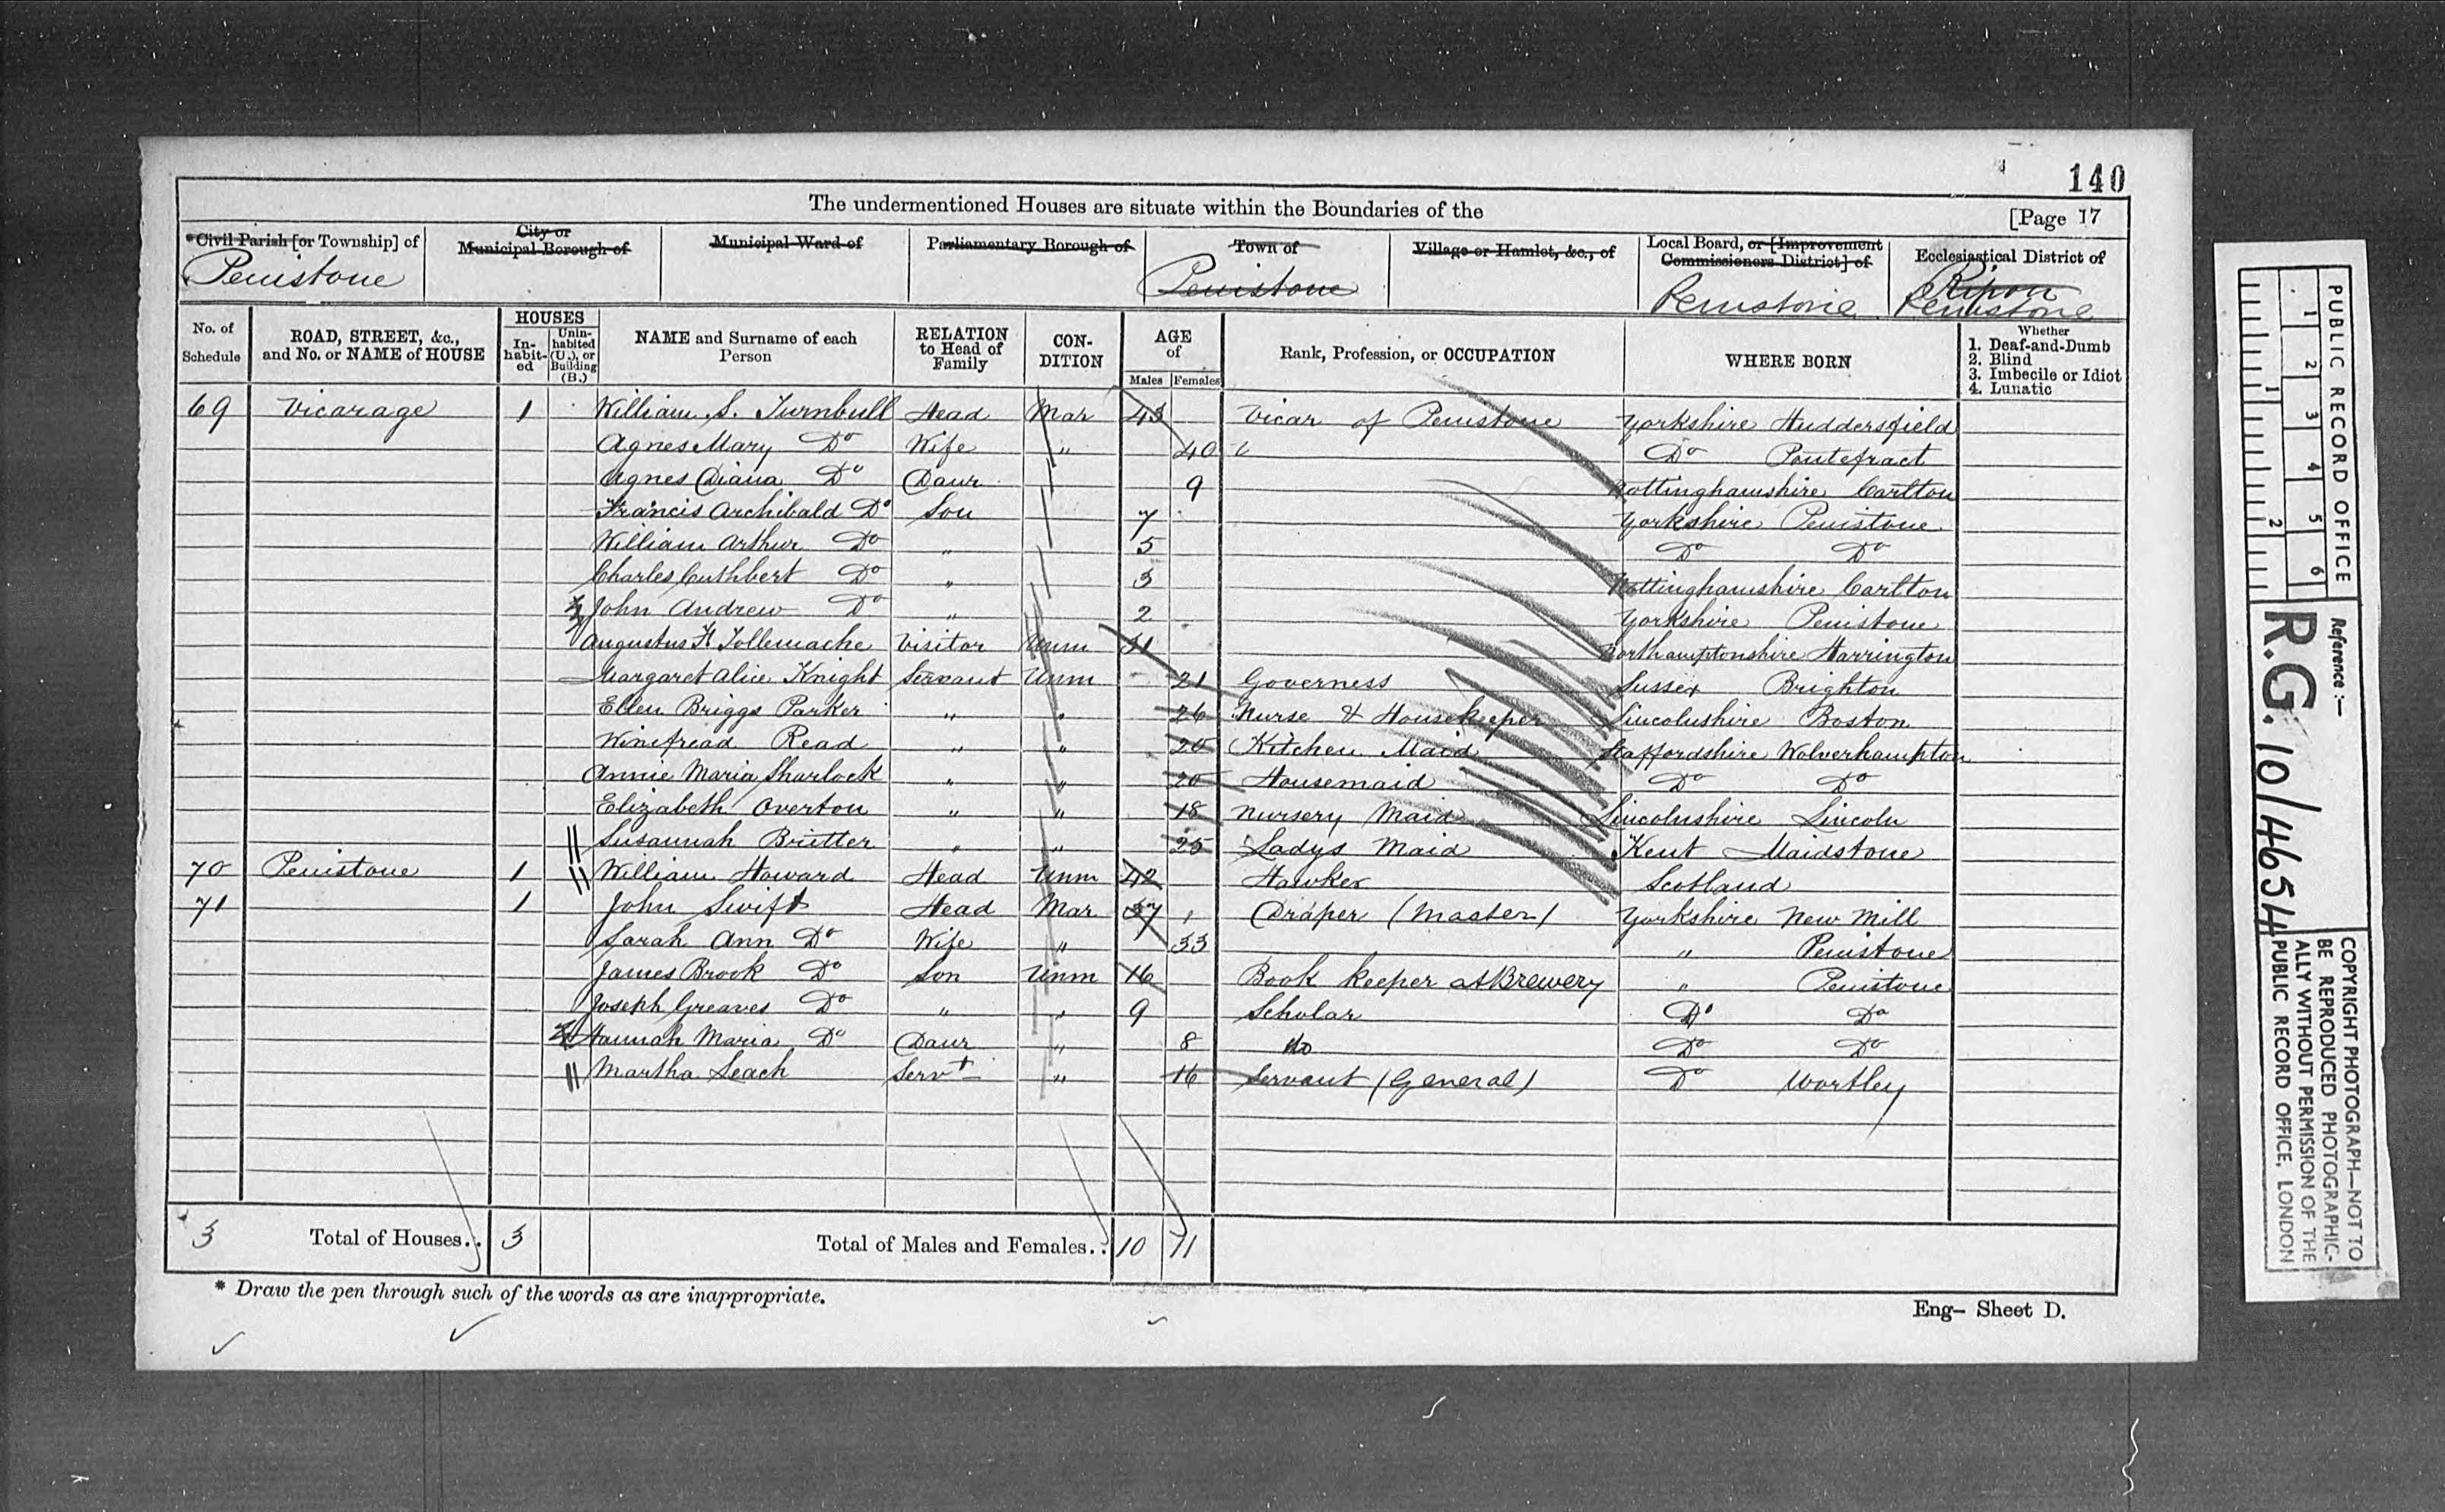 140
The undermentioned Houses are situate within the Boundaries of the
[Page 17
*Civil Parish [or Township] of
City or Municipal Borough of
Municipal Ward of
Parliamentary Borough of
Town of
Village or Hamlet, &c., of
Local Board, or [Improvement Commissioners District] of
Ecclesiastical District of
Penistone
Penistone
Penistone
Ripon
Penistone
No. of Schedule
ROAD, STREET, &c., and No. or NAME of HOUSE
HOUSES
In-habit-ed
Unin-habited (U.), or Building (B.)
NAME and Surname of each Person
RELATION to Head of Family
CON-DITION
AGE of
Males
Females
Rank, Profession, or OCCUPATION
WHERE BORN
Whether
1. Deaf-and-Dumb
2. Blind
3. Imbecile or Idiot
4. Lunatic
69 Vicarage 1 William S. Turnbull Head Mar 43 Vicar of Penistone Yorkshire Huddersfield
Agnes Mary Do Wife " 40 Do Pontefract
Agnes Diana Do Daur 9 Nottinghamshire Carlton
Francis Archibald Do Son 7 Yorkshire Penistone
William Arthur Do " 5 Do Do
Charles Cuthbert Do " 3 Nottinghamshire Carlton
John Andrew Do " 2 Yorkshire Penistone
Augustus F Tollemache Visitor Unm 31 Northamptonshire Harrington
Margaret Alice Knight Servant Unm 21 Governess Sussex Brighton
Ellen Briggs Parker " " 26 Nurse & Housekeeper Lincolnshire Boston
Winefread Read " " 20 Kitchen Maid Staffordshire Wolverhampton
Annie Maria Sharlock " " 20 Housemaid Do Do
Elizabeth Overton " " 18 Nursery Maid Lincolnshire Lincoln
Susannah Brutter " " 25 Ladys Maid Kent Maidstone
70 Penistone 1 William Howard Head Unm 42 Hawker Scotland
71 1 John Swift Head Mar 37 Draper (Master) Yorkshire New Mill
Sarah Ann Do Wife " 33 " Penistone
James Brook Do Son Unm 16 Book keeper at Brewery " Penistone
Joseph Greaves Do " " 9 Scholar Do Do
Hannah Maria Do Daur " 8 do Do Do
Martha Leach Servt " 16 Servant (General) Do Wortley
3 Total of Houses.. 3 Total of Males and Females.. 10 11
* Draw the pen through such of the words as are inappropriate.
Eng- Sheet D.
PUBLIC RECORD OFFICE
1 2 3 4 5 6
1 2
Reference :—
R.G. 10/4654
COPYRIGHT PHOTOGRAPH—NOT TO
BE REPRODUCED PHOTOGRAPHIC-
ALLY WITHOUT PERMISSION OF THE
PUBLIC RECORD OFFICE, LONDON